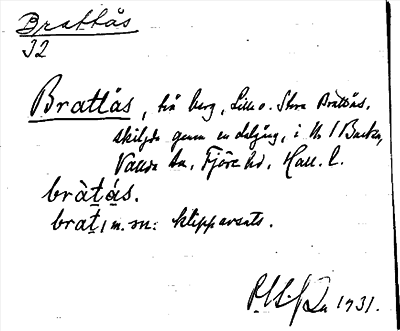 Brattås
32
Brattås, två berg, Lilla o. Stora Brattås,
skiljda genom en daljång, i N. 1 Backa,
Valda sn, Fjäre hd, Hall. l.
bràtás.
brat, m. m: klippavsats.
1931.